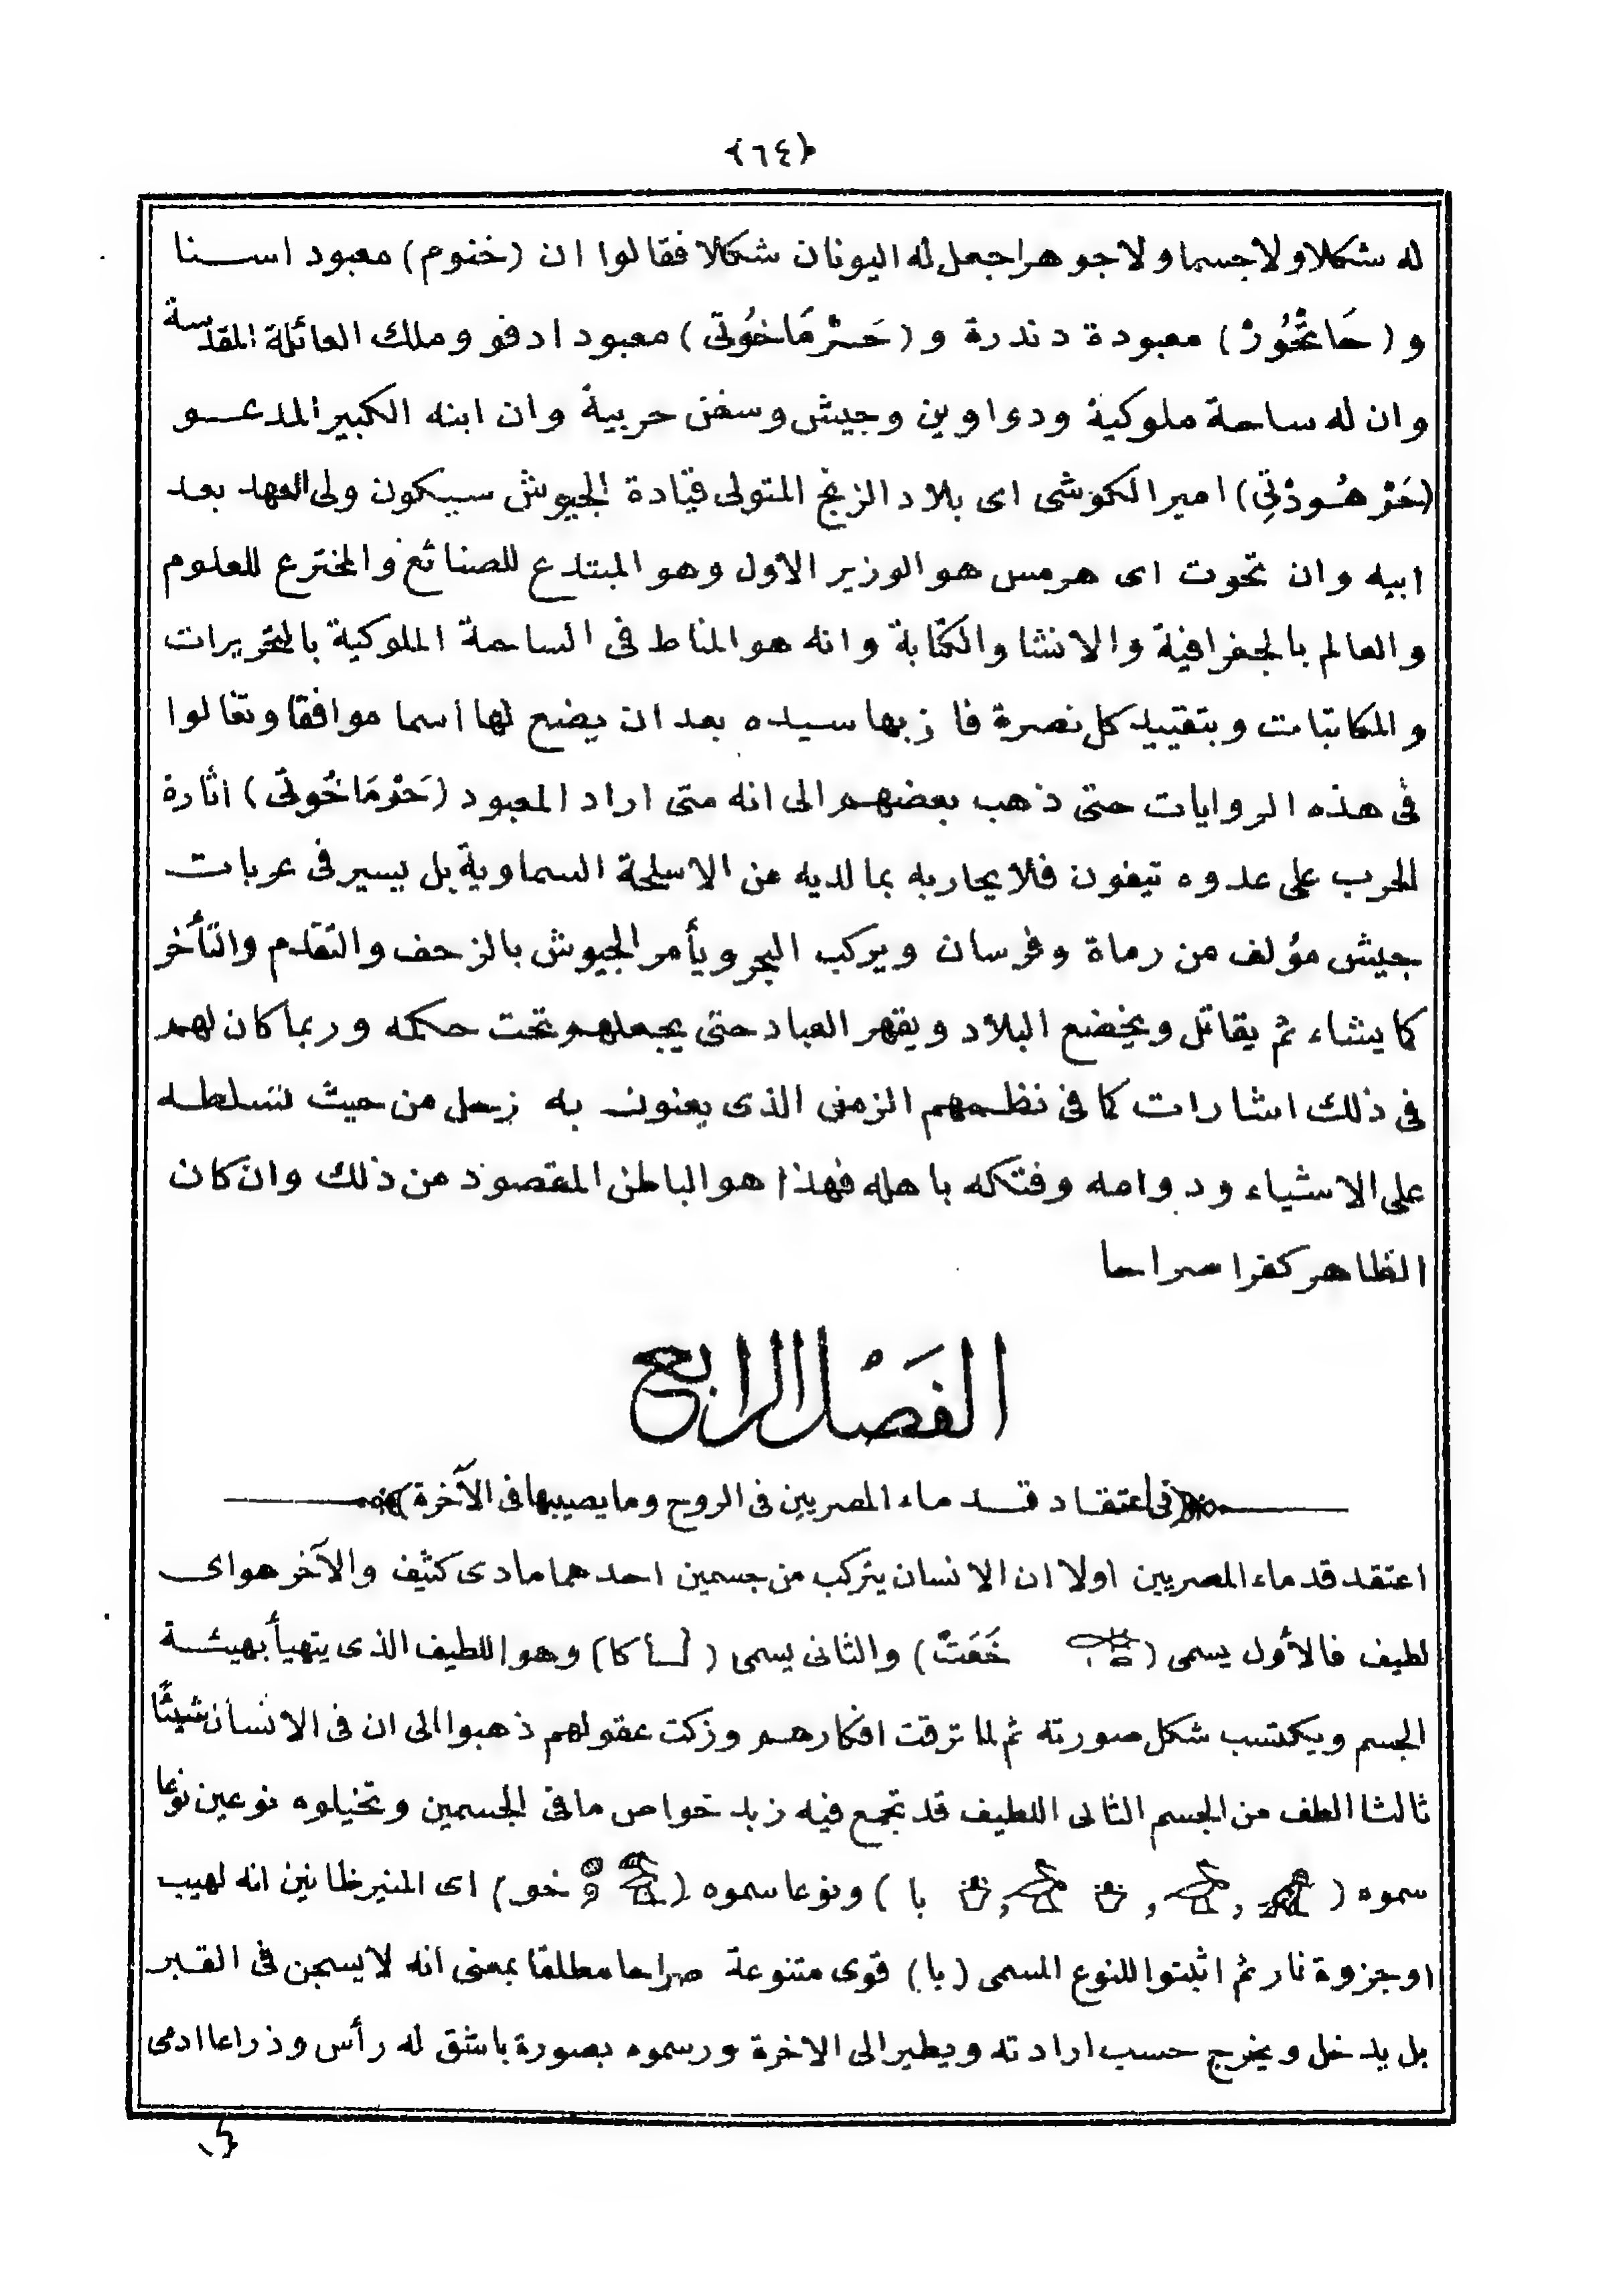 ﴿٦٤﴾
له شكلا ولا جسما ولا جوهرا جعل له اليونان شكلا فقالوا ان (خنوم) معبود اسنا
و (حَاتْحُورْ) معبودة دندرة و (حَرْمَاخُوتى) معبود ادفو وملك العائلة المقدسة
وان له ساحة ملوكية ودواوين وجيش وسفن حربية وان ابنه الكبير المدعو
(حَرْ هُودْتِى) امير الكوشى اى بلاد الزنج المتولى قيادة الجيوش سيكون ولى العهد بعد
ابيه وان تحوت اى هرمس هو الوزير الأول وهو المبتدع للصنائع والمخترع للعلوم
والعالم بالجغرافية والانشا والكتابة وانه هو المناط فى الساحة الملوكية بالتحريرات
والمكاتبات وبتقييد كل نصرة فاز بها سيده بعد ان يضع لها اسما موافقا وتغالوا
فى هذه الروايات حتى ذهب بعضهم الى انه متى اراد المعبود (حَرْمَاخُوتى) اثارة
الحرب على عدوه تيفون فلا يحاربه بما لديه من الاسلحة السماوية بل يسير فى عربات
جيش مؤلف من رماة وفرسان ويركب البحر ويأمر الجيوش بالزحف والتقدم والتأخر
كما يشاء ثم يقاتل ويخضع البلاد ويقهر العباد حتى يجعلهم تحت حكمه وربما كان لهم
فى ذلك اشارات كما فى نظمهم الزمنى الذى يعنون به زحل من حيث تسلطه
على الاشياء ودوامه وفتكه باهله فهذا هو الباطن المقصود من ذلك وان كان
الظاهر كفرا صراحا
الفَصْل الرابع
﴿فى اعتقاد قدماء المصريين فى الروح وما يصيبها فى الآخرة﴾
اعتقد قدماء المصريين اولا ان الانسان يتركب من جسمين احدهما مادى كثيف والآخر هواى
لطيف فالأول يسمى ( خَعَتْ) والثانى يسمى ( كا) وهو اللطيف الذى يتهيأ بهيئة
الجسم ويكتسب شكل صورته ثم لما ترقت افكارهم وزكت عقولهم ذهبوا الى ان فى الانسان شيئًا
ثالثا الطف من الجسم الثانى اللطيف قد تجمع فيه زبد خواص ما فى الجسمين وتخيلوه نوعين نوعا
سموه ( , , , با ) ونوعا سموه ( خو) اى المنير ظانين انه لهيب
او جزوة نار ثم اثبتوا للنوع المسمى (با) قوى متنوعة صراحا مطلقا بمعنى انه لا يسجن فى القبر
بل يدخل ويخرج حسب ارادته ويطير الى الاخرة ورسموه بصورة باشق له رأس وذراعا ادمى